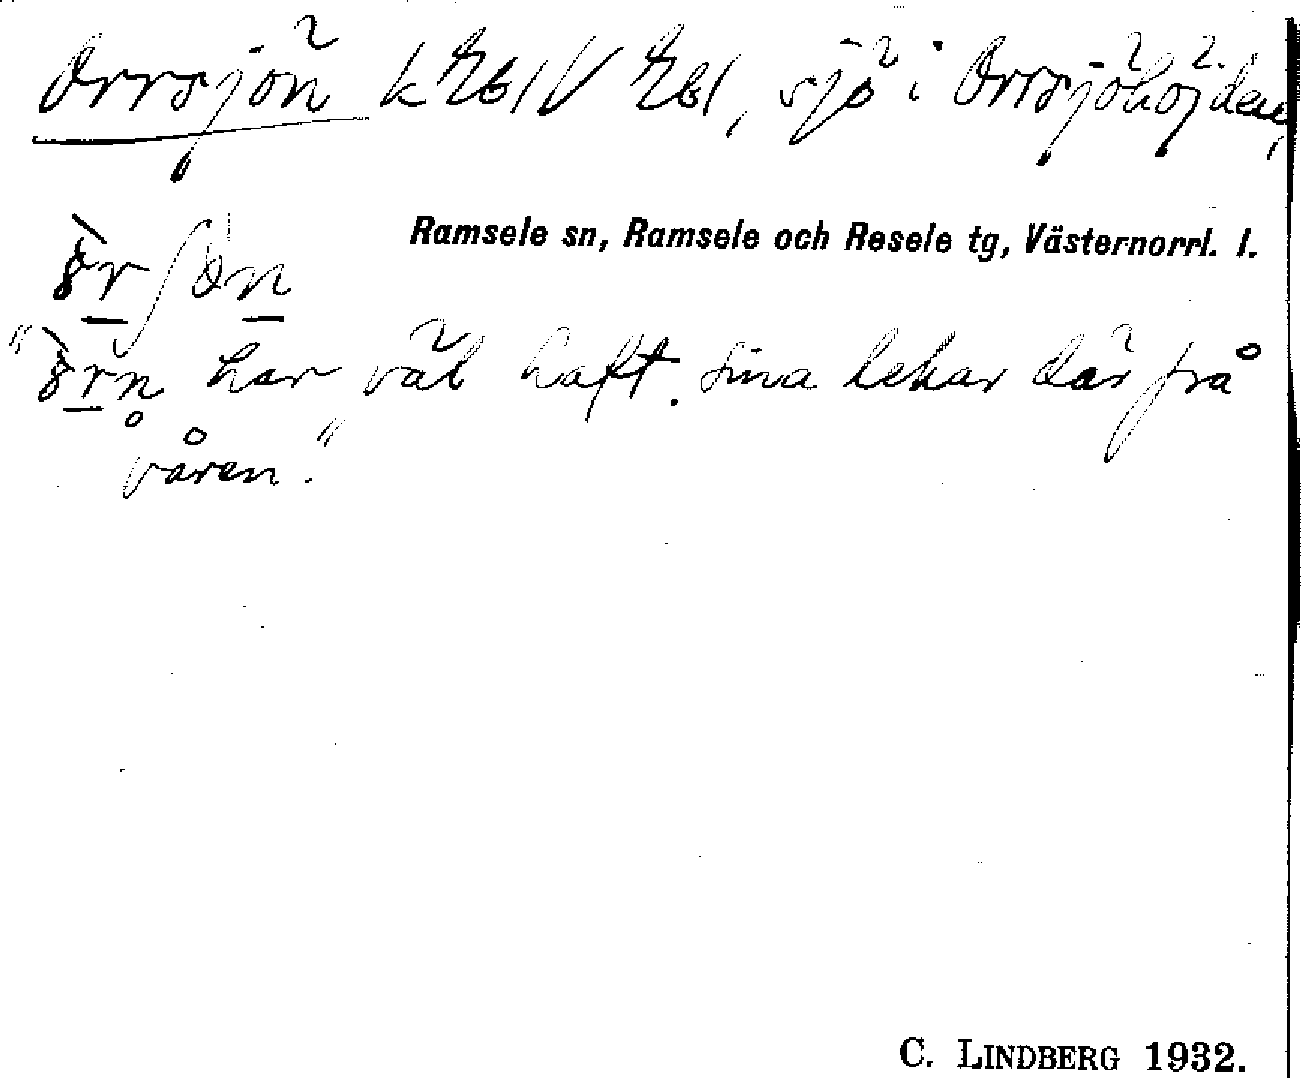 Orrsjön k EblV Ebl, sjö i Orrsjöhöjden,
Ramsele sn, Ramsele och Resele tg, Västernorrl. l.
har väl haft sina lekar där frå
våren."
C. LINDBERG 1932.